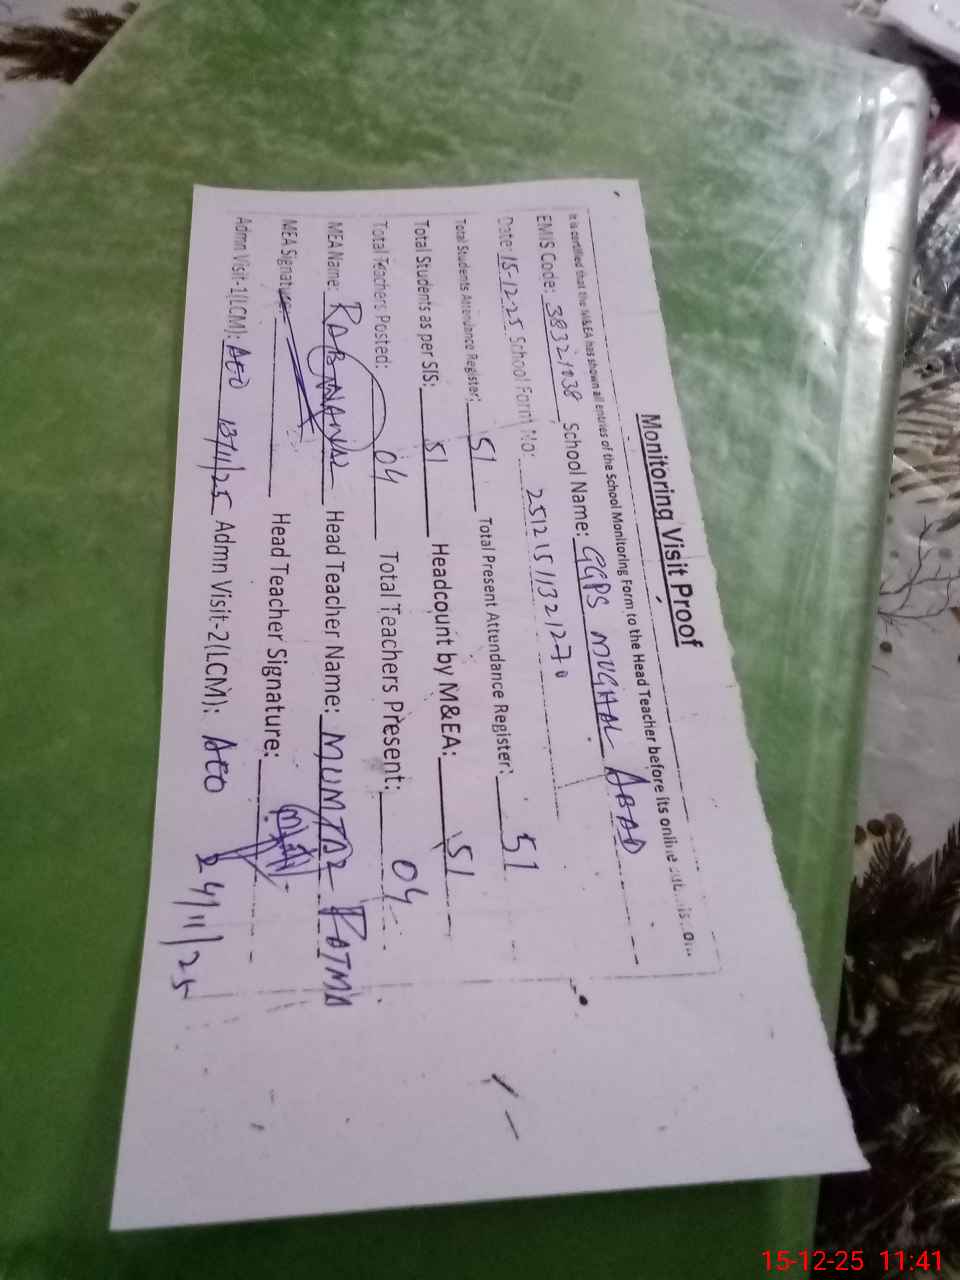 Monitoring Visit Proof
It is certified that the M&EA has shown all entries of the School Monitoring Form to the Head Teacher before its online
EMIS Code: 38321038 School Name: GGPS MUGHAL ABAD
Date: 15-12-25 School Form No: 25121511321270
Total Students Attendance Register: 51 Total Present Attendance Register: 51
Total Students as per SIS: 51 Headcount by M&EA: 51
Total Teachers Posted: 04 Total Teachers Present: 04
MEA Name: Head Teacher Name: MUMTAZ FATMA
MEA Signature: Head Teacher Signature:
Admn Visit-1(LCM): AEO 13/11/25 Admn Visit-2(LCM): AEO 24/11/25
15-12-25 11:41